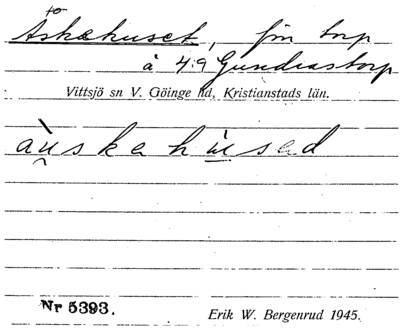 to
Askahuset, frn torp
å 4:9 Gundrastorp
Vittsjö sn V. Göinge hd, Kristianstads län.
àu̯skahùsad
Nr 5393.
Erik W. Bergenrud 1945.